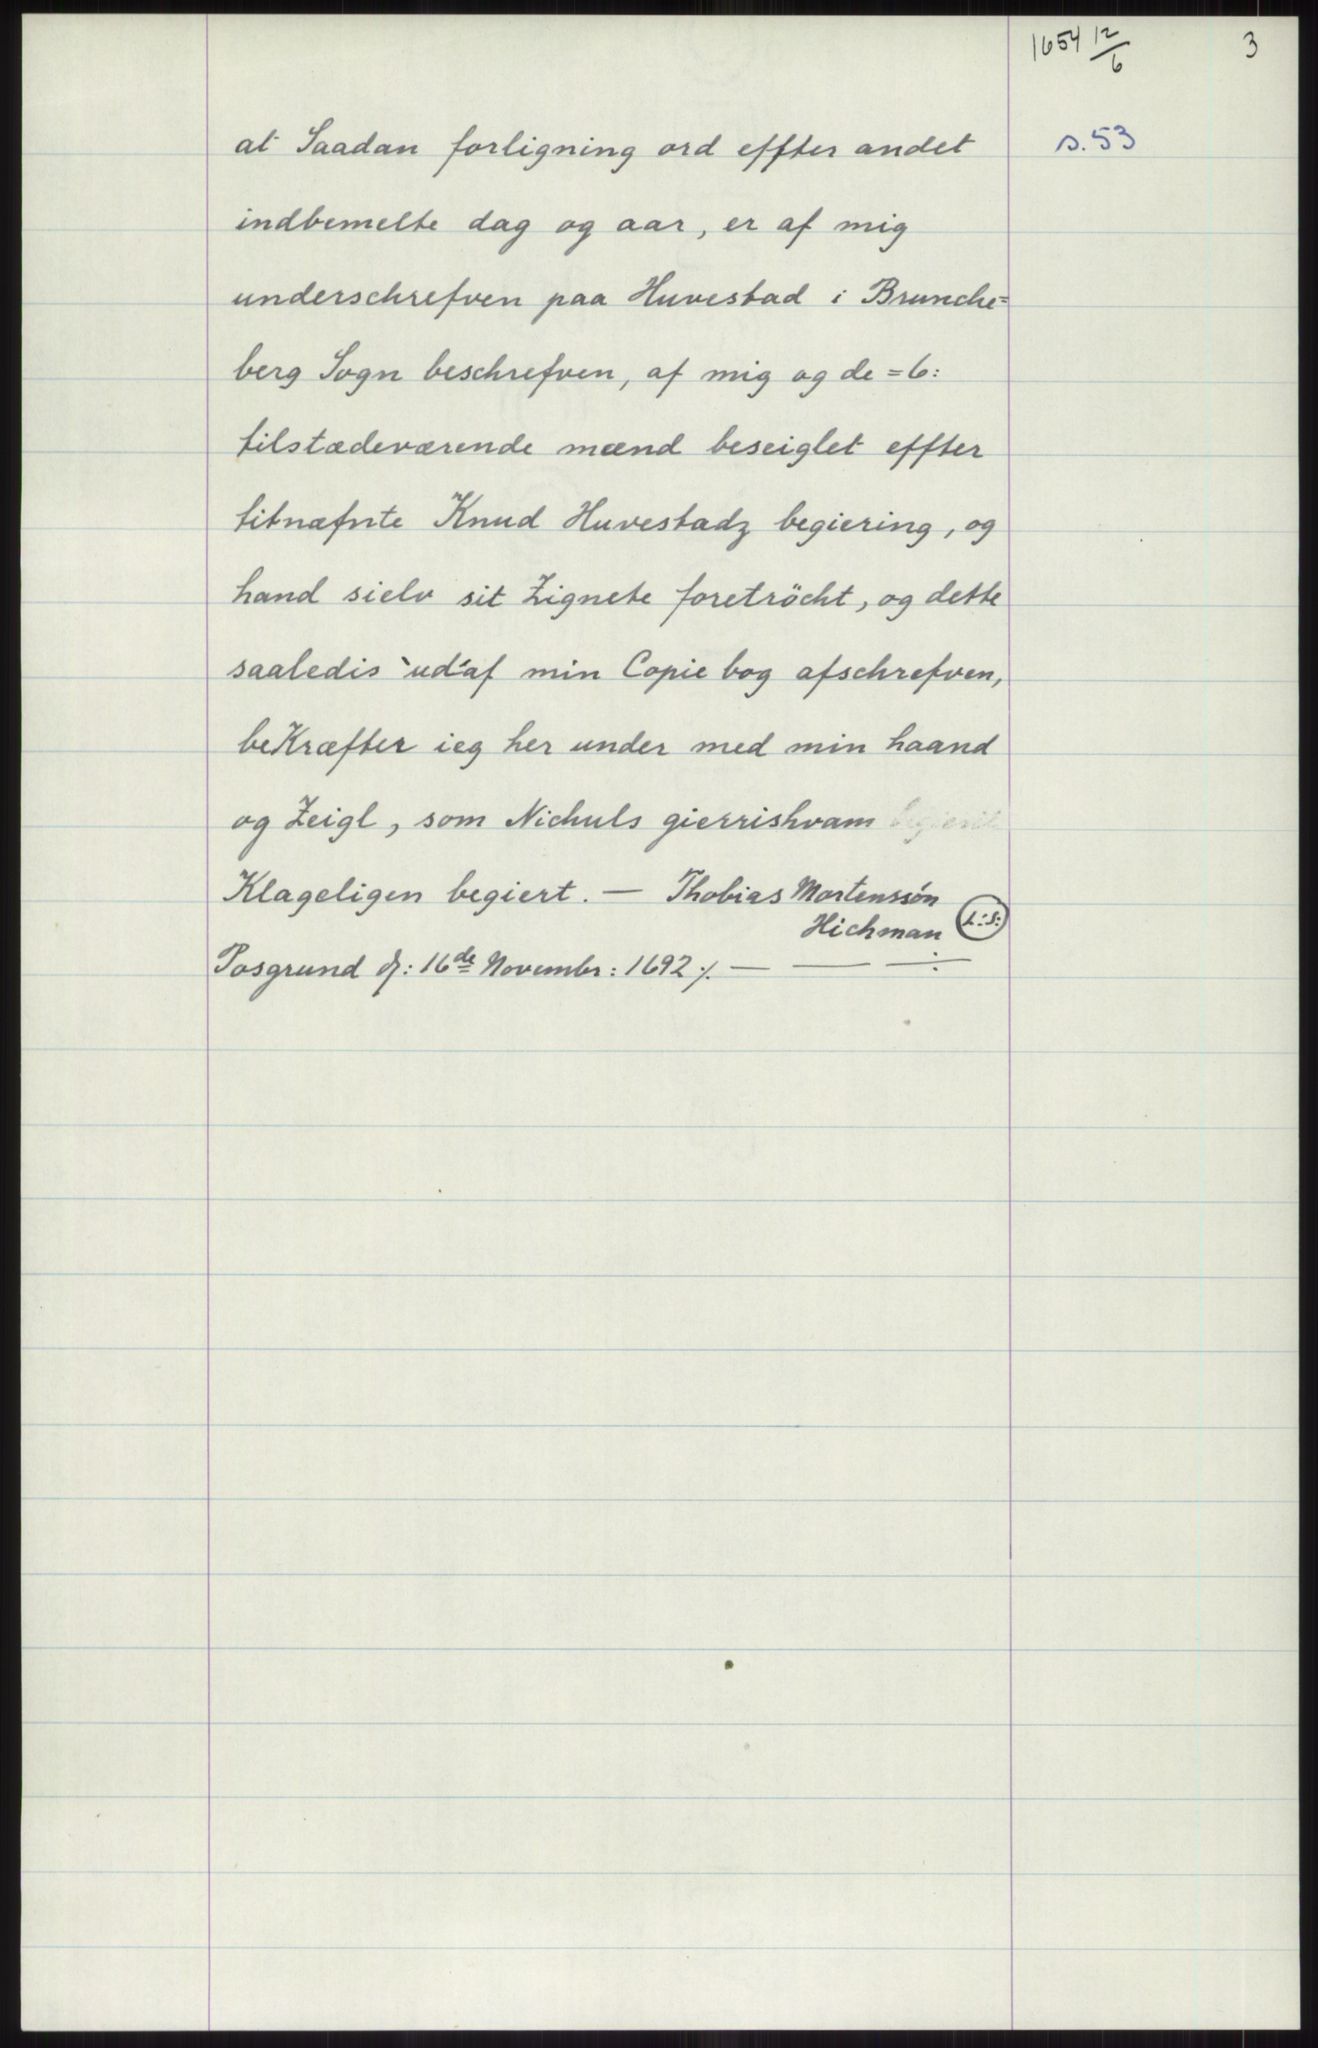 1654 12/6 3
at Saadan forligning ord effter andet s. 53
indbemelte dag og aar, er af mig
underschrefven paa Huvestad i Brunche=
berg Sogn beschrefven, af mig og de =6:
tilstædeværende mænd beseiglet effter
titnæfnte Knud Huvestadz begiering, og
hand sielv sit Zignete foretröcht, og dette
saaledis `ud´af min Copie bog afschrefven,
beKræfter ieg her under med min haand
og Zeigl, som Nichuls gierrishvam
Klageligen begiert. — Thobias Mortenssøn
Hichman L:S:
Posgrund d: 16de Novembr: 1692 ⁒ — — ÷